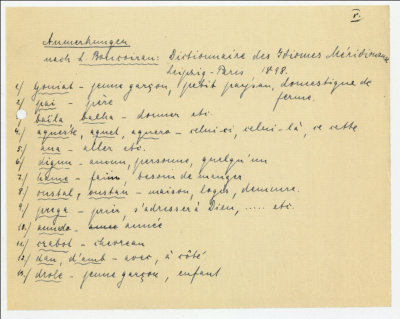 V.
Anmerkungen
nach L. Boucoiran: Dictionnaire des Idiomes Méridionaux
Leipzig-Paris 1898.
1/ goujat - jeune garçon, petit paysan, domestique de
ferme.
2/ pai - père
baïla bacha - donner etc.
4/ aqueste, aquel, aquera - celui-ci, celui-là, ce cette
5/ ana - aller etc.
6/ digun - aucun, personne, quelqu'un
7/ hame - faim besoin de manger
8/ oustal, oustau - maison, loges, demeure.
9/ prega - prier, s'adresser à Dieu, ..... etc.
10/ année
11/ crabot - chevreau
12/ dan, d'amb - avec, à côté
13/ drole - jeune garçon, enfant